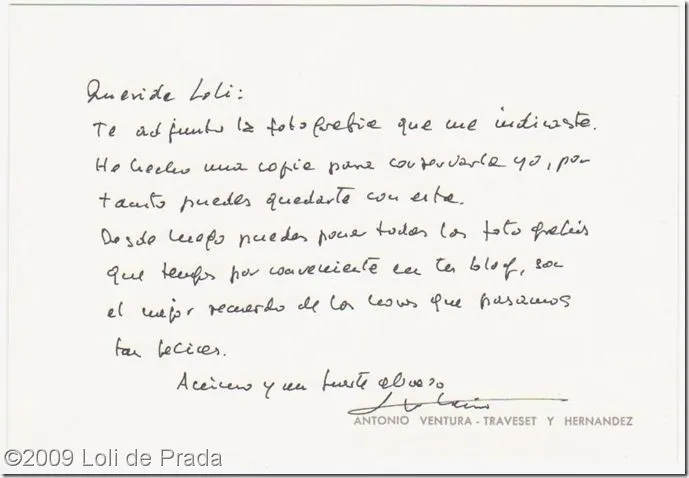 Querida Loli:
Te adjunto la fotografia que me indicaste.
He hecho una copia para conservarla yo, por
tanto puedes quedarte con esta.
Desde luego puedes poner todas las fotografias
que tengas por conveniente en tu blog, son
el mejor recuerdo de las horas que pasamos
tan felices.
y un fuerte abrazo
Antonio
ANTONIO VENTURA - TRAVESET Y HERNANDEZ
©2009 Loli de Prada